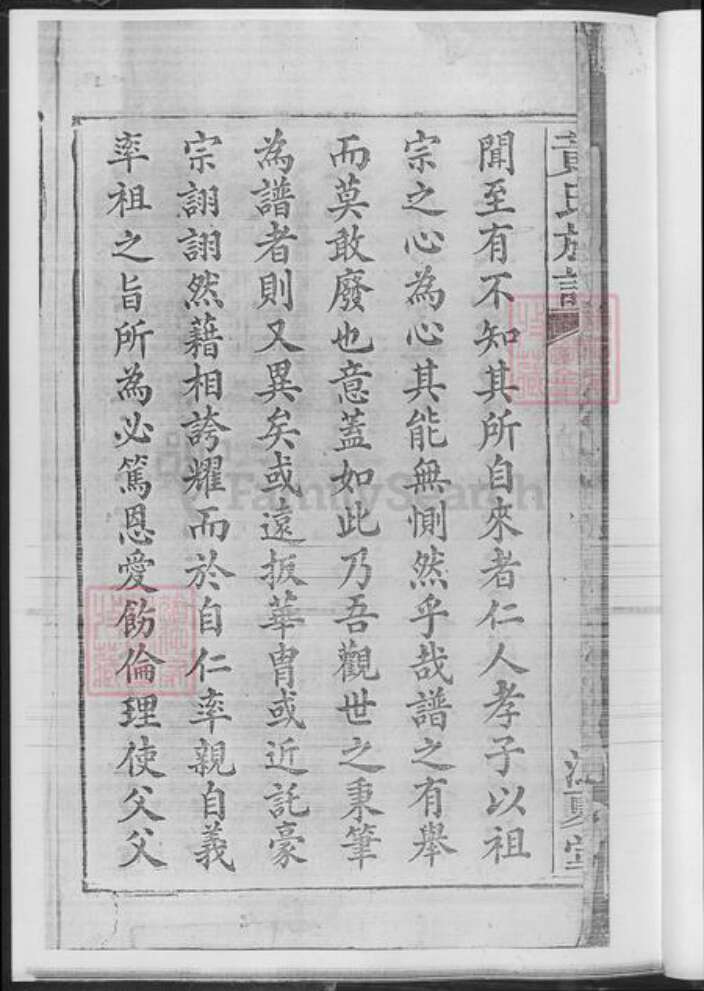 黃氏族譜
江夏堂
聞至有不知其所自來者仁人孝子以祖
宗之心為心其能無惻然乎哉譜之有舉
而莫敢廢也意蓋如此乃吾觀世之秉筆
為譜者則又異矣或遠扳華冑或近託豪
宗詡詡然藉相誇耀而於自仁率親自義
率祖之旨所為必篤恩愛飭倫理使父父
FamilySearch